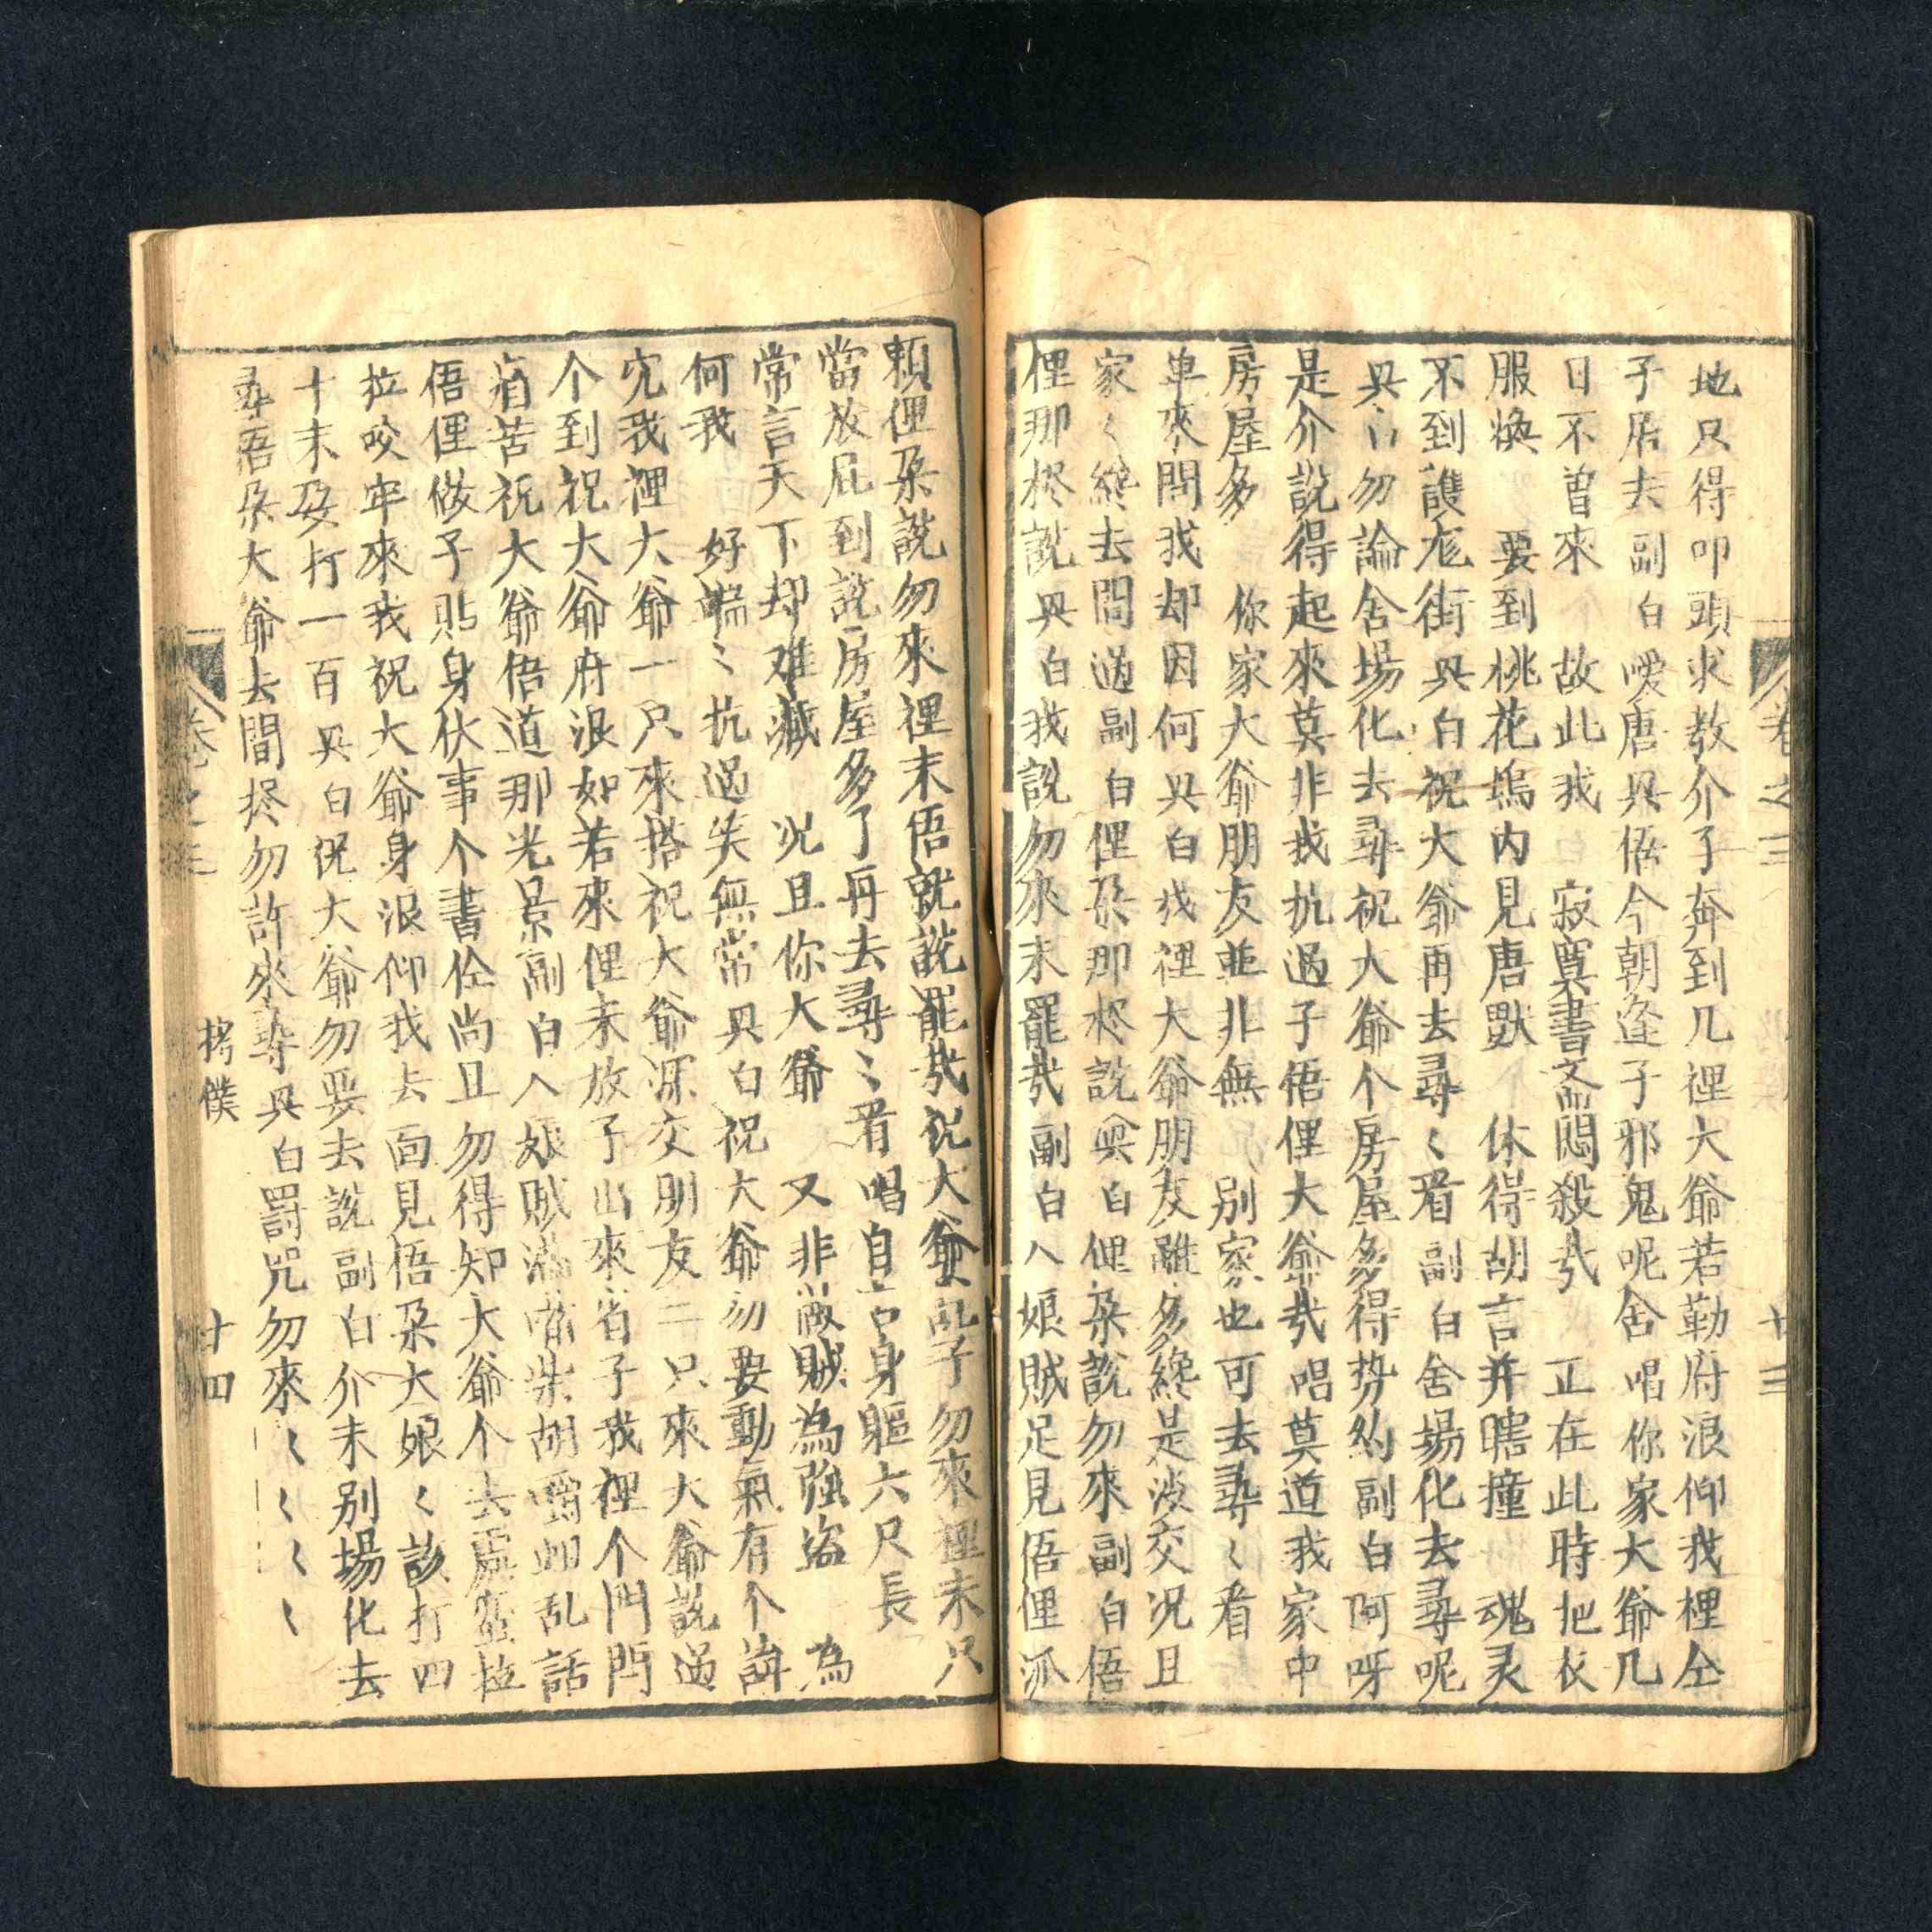 地只得叩頭求教介了奔到几裡大爺若勒府浪仰我裡仝
子居去副白噯唐興悟今朝逢子邪鬼呢舍唱你家大爺几
日不曾來 故此我 寂寞書齋悶殺㢤 正在此時把衣
服煥 要到桃花塢内見唐獸 休得胡言并瞎撞 魂灵
不到護龙街興白祝大爺再去尋〻看副白舍場化去尋呢
興白勿論舍場化去尋祝大爺个房屋多得势的副白阿呀
是介説得起來莫非我抗過子悟俚大爺㢤唱莫道我家中
房屋多 你家大爺朋友並非無 别家也可去尋〻看
單來問我却因何興白我裡大爺朋友雖多終是淡交况且
家〻終去問過副白俚朶那柊説興白俚朶說勿來副白悟
俚那柊説興白我説勿來末罷㢤副白入娘賊足見悟俚派
頼俚朶説勿來裡末悟就説罷㢤祝大爺乱子勿來裡末只
當放屁到説房屋多了再去尋〻看唱自古身軀六尺長
常言天下却难藏 况且你大爺 又非敵賊為強盗 為
何我 好端〻抗過失無常興白祝大爺勿要動氣有个講
究我裡大爺一只來搭祝大爺深交朋友二只來大爺説過
个到祝大爺府浪如若來俚末放子出來省子我裡个門門
痛苦祝大爺悟道那光景副白入娘賊滿嘴柴胡嚼蛆乱話
悟俚做子貼身伏事个書仝尚且勿得知大爺个去處蛮拉
拉咬牢來我祝大爺身浪仰我去面見悟朶大娘〻該打四
十末要打一百興白祝大爺勿要去説副白介末别場化去
尋悟朶大爺去間柊勿許來尋興白罰咒勿來〻〻〻〻
卷之三
十三
卷之三
拷僕
十四